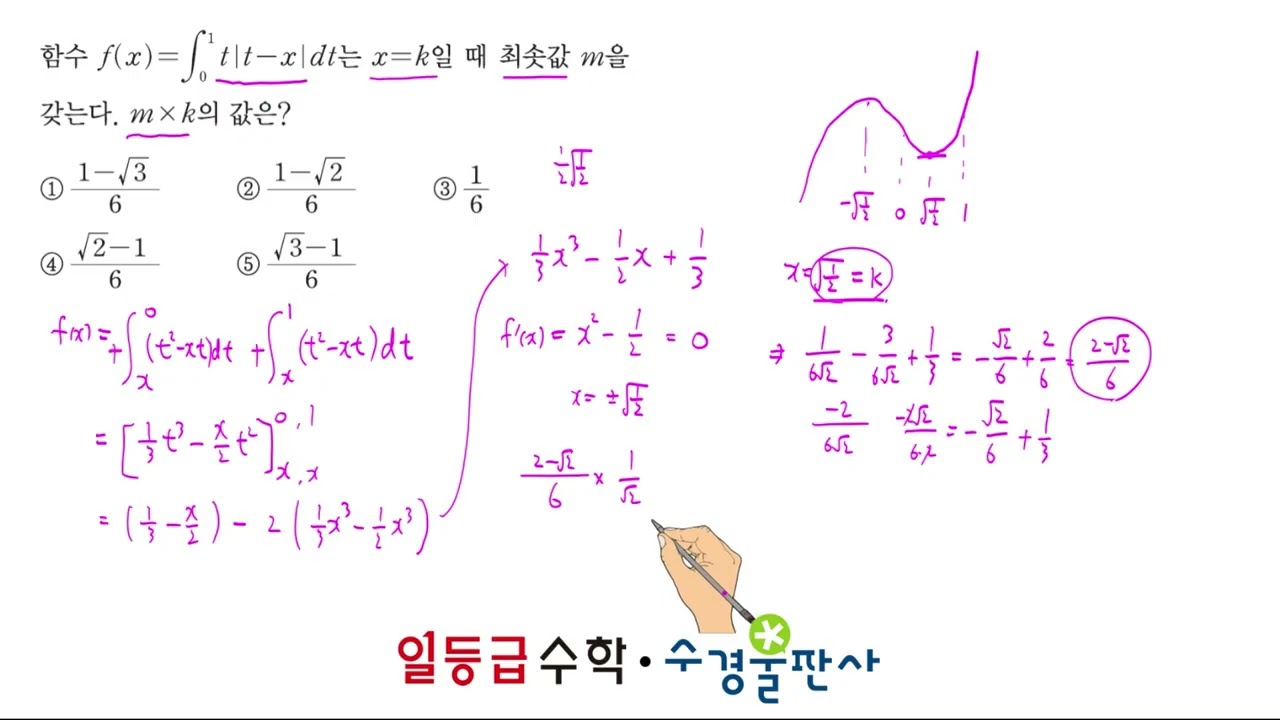 함수 f(x)=∫₀¹ t|t−x|dt는 x=k일 때 최솟값 m을
갖는다. m×k의 값은?
① (1−√3)/6 ② (1−√2)/6 ③ 1/6
④ (√2−1)/6 ⑤ (√3−1)/6
f(x) = +∫ₓ⁰ (t²−xt)dt + ∫ₓ¹ (t²−xt)dt
= [1/3 t³ − x/2 t²]ₓ,ₓ⁰,¹
= (1/3 − x/2) − 2(1/3 x³ − 1/2 x³)
1/2 √(1/2)
1/3 x³ − 1/2 x + 1/3
f'(x) = x² − 1/2 = 0
x = ±√(1/2)
(2−√2)/6 × 1/√2
−√(1/2) 0 √(1/2) 1
x = √(1/2) = k
⇒ 1/(6√2) − 3/(6√2) + 1/3 = −√2/6 + 2/6 = (2−√2)/6
−2/(6√2) −2√2/(6·2) = −√2/6 + 1/3
일등급 수학 · 수경출판사